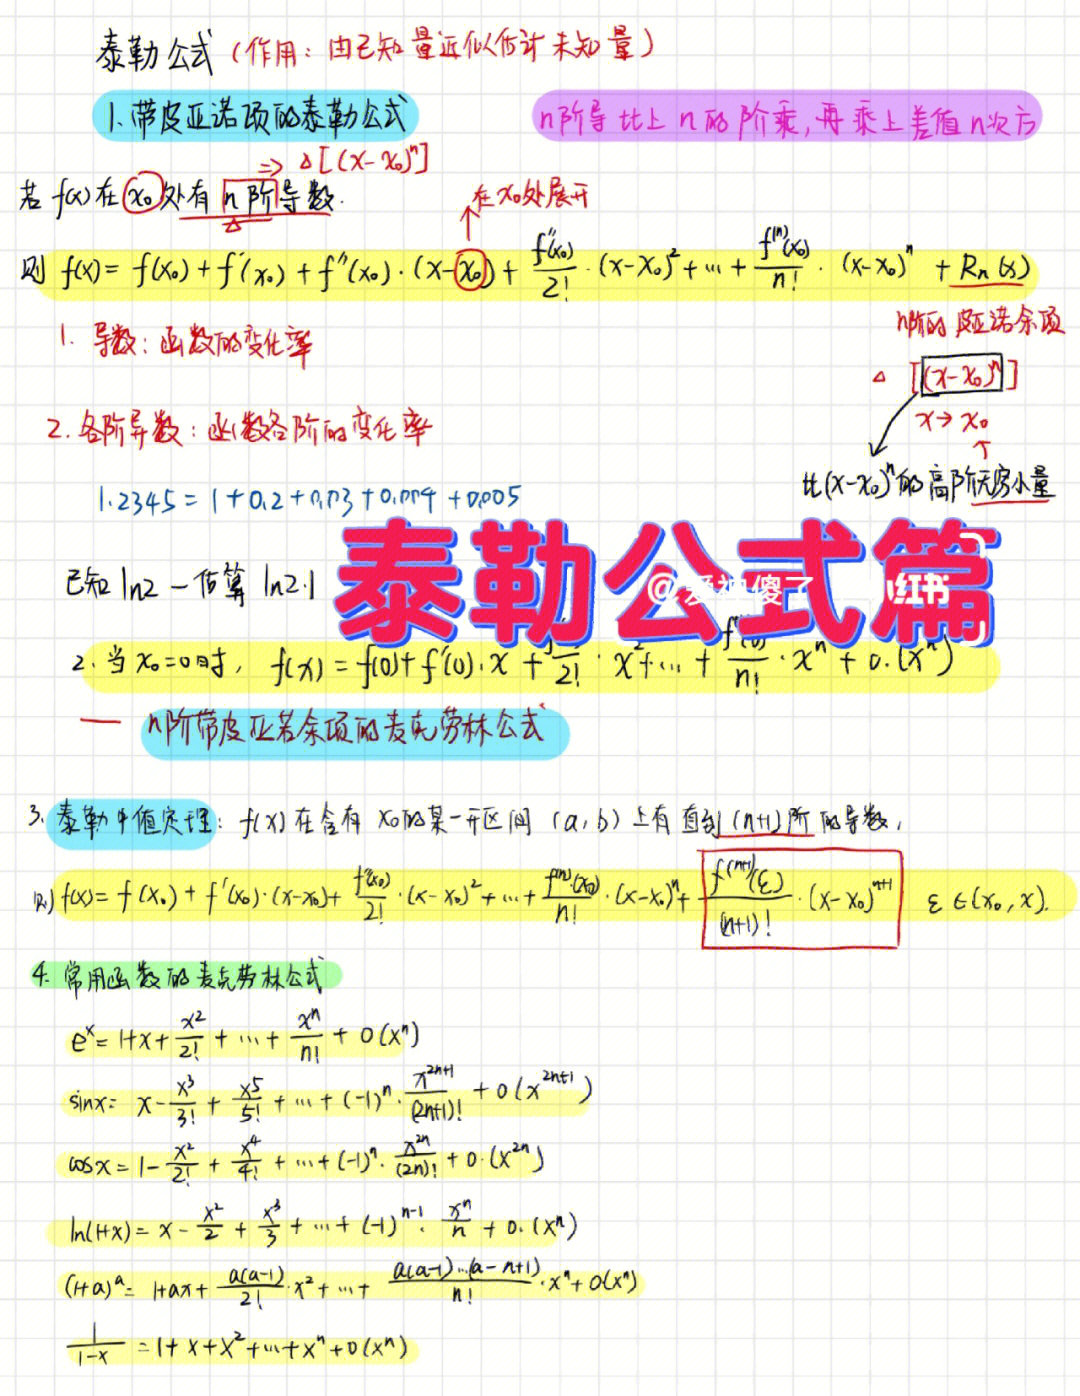 泰勒公式(作用：由已知量近似估计未知量)
1.带皮亚诺项的泰勒公式
n阶导比上n的阶乘,再乘上差值n次方
⇒ △[(x-x₀)ⁿ]
若f(x)在x₀处有n阶导数.
△
在x₀处展开
则 f(x)= f(x₀)+f′(x₀)+f″(x₀)·(x-x₀)+ f″(x₀)/2! ·(x-x₀)²+…+ f⁽ⁿ⁾(x₀)/n! ·(x-x₀)ⁿ +Rn(x)
n阶的皮亚诺余项
1. 导数：函数的变化率
△ [(x-x₀)ⁿ]
x→x₀
2.各阶导数：函数各阶的变化率
比(x-x₀)ⁿ的高阶无穷小量
1.2345=1+0.2+0.03+0.004+0.005
泰勒公式篇
已知 ln2 — 估算 ln2.1
小红书
2.当x₀=0时, f(x)=f(0)+f′(0)·x+ /2! ·x²+…+ f⁽ⁿ⁾(0)/n! ·xⁿ+0.(xⁿ)
— n阶带皮亚若余项的麦克劳林公式
3.泰勒中值定理：f(x)在含有x₀的某一开区间(a,b)上有直到(n+1)阶的导数,
则 f(x)=f(x₀)+f′(x₀)·(x-x₀)+ f″(x₀)/2! ·(x-x₀)²+…+ f⁽ⁿ⁾(x₀)/n! ·(x-x₀)ⁿ+ f⁽ⁿ⁺¹⁾(ξ)/(n+1)! ·(x-x₀)ⁿ⁺¹ ξ∈(x₀,x).
4.常用函数的麦克劳林公式
eˣ=1+x+ x²/2! +…+ xⁿ/n! +0(xⁿ)
sinx= x- x³/3! + x⁵/5! +…+(-1)ⁿ· x²ⁿ⁺¹/(2n+1)! +0(x²ⁿ⁺¹)
cosx=1- x²/2! + x⁴/4! +…+(-1)ⁿ· x²ⁿ/(2n)! +0.(x²ⁿ)
ln(1+x)=x- x²/2 + x³/3 +…+(-1)ⁿ⁻¹· xⁿ/n +0.(xⁿ)
(1+a)ᵃ=1+ax+ a(a-1)/2! ·x²+…+ a(a-1)…(a-n+1)/n! ·xⁿ+0(xⁿ)
1/(1-x) =1+x+x²+…+xⁿ+0(xⁿ)